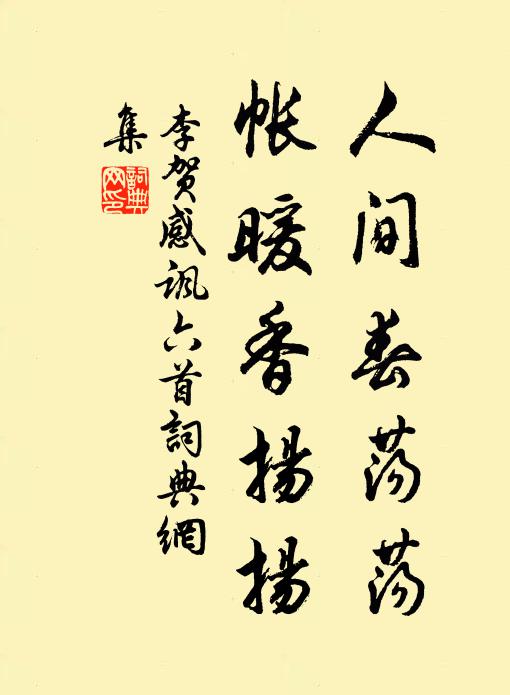 人间春荡荡
帐暖香揚揚
李贺感讽六首詞典網
集
詞典
网印